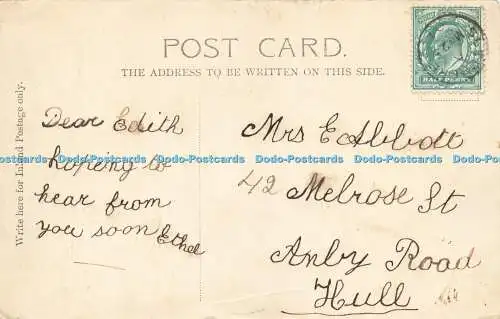 POST CARD.
THE ADDRESS TO BE WRITTEN ON THIS SIDE.
HALF PENNY
Write here for Inland Postage only.
Dear Edith
hopeing to
hear from
you soon Ethel
Mrs E Abbott
42 Melrose St
Anby Road
Hull
Dodo-Postcards Dodo-Postcards Dodo-Postcards Dodo-Postcards Dodo-Postcards Dodo-Postcards